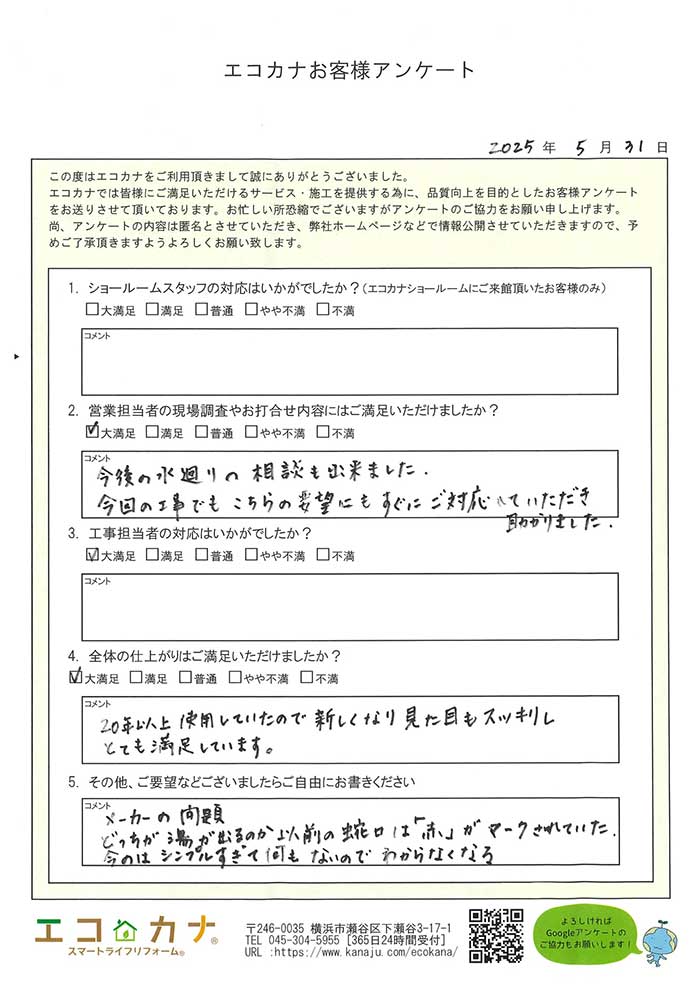 エコカナお客様アンケート
2025 年 5 月 31 日
この度はエコカナをご利用頂きまして誠にありがとうございました。
エコカナでは皆様にご満足いただけるサービス・施工を提供する為に、品質向上を目的としたお客様アンケート
をお送りさせて頂いております。お忙しい所恐縮でございますがアンケートのご協力をお願い申し上げます。
尚、アンケートの内容は匿名とさせていただき、弊社ホームページなどで情報公開させていただきますので、予
めご了承頂きますようよろしくお願い致します。
1. ショールームスタッフの対応はいかがでしたか?(エコカナショールームにご来館頂いたお客様のみ)
□大満足 □満足 □普通 □やや不満 □不満
コメント
2. 営業担当者の現場調査やお打合せ内容にはご満足いただけましたか?
☑大満足 □満足 □普通 □やや不満 □不満
コメント
今後の水廻りの相談も出来ました.
今回の工事でもこちらの要望にもすぐにご対応していただき
助かりました.
3. 工事担当者の対応はいかがでしたか?
☑大満足 □満足 □普通 □やや不満 □不満
コメント
4. 全体の仕上がりはご満足いただけましたか?
☑大満足 □満足 □普通 □やや不満 □不満
コメント
20年以上使用していたので新しくなり見た目もスッキリし
とても満足しています。
5. その他、ご要望などございましたらご自由にお書きください
コメント
メーカーの問題
どっちが湯が出るのか以前の蛇口は「赤」がマークされていた.
今のはシンプルすぎて何もないのでわからなくなる
エコカナ®
スマートライフリフォーム®
〒246-0035 横浜市瀬谷区下瀬谷3-17-1
TEL 045-304-5955 [365日24時間受付]
URL :https://www.kanaju.com/ecokana/
よろしければ
Googleアンケートの
ご協力もお願いします!